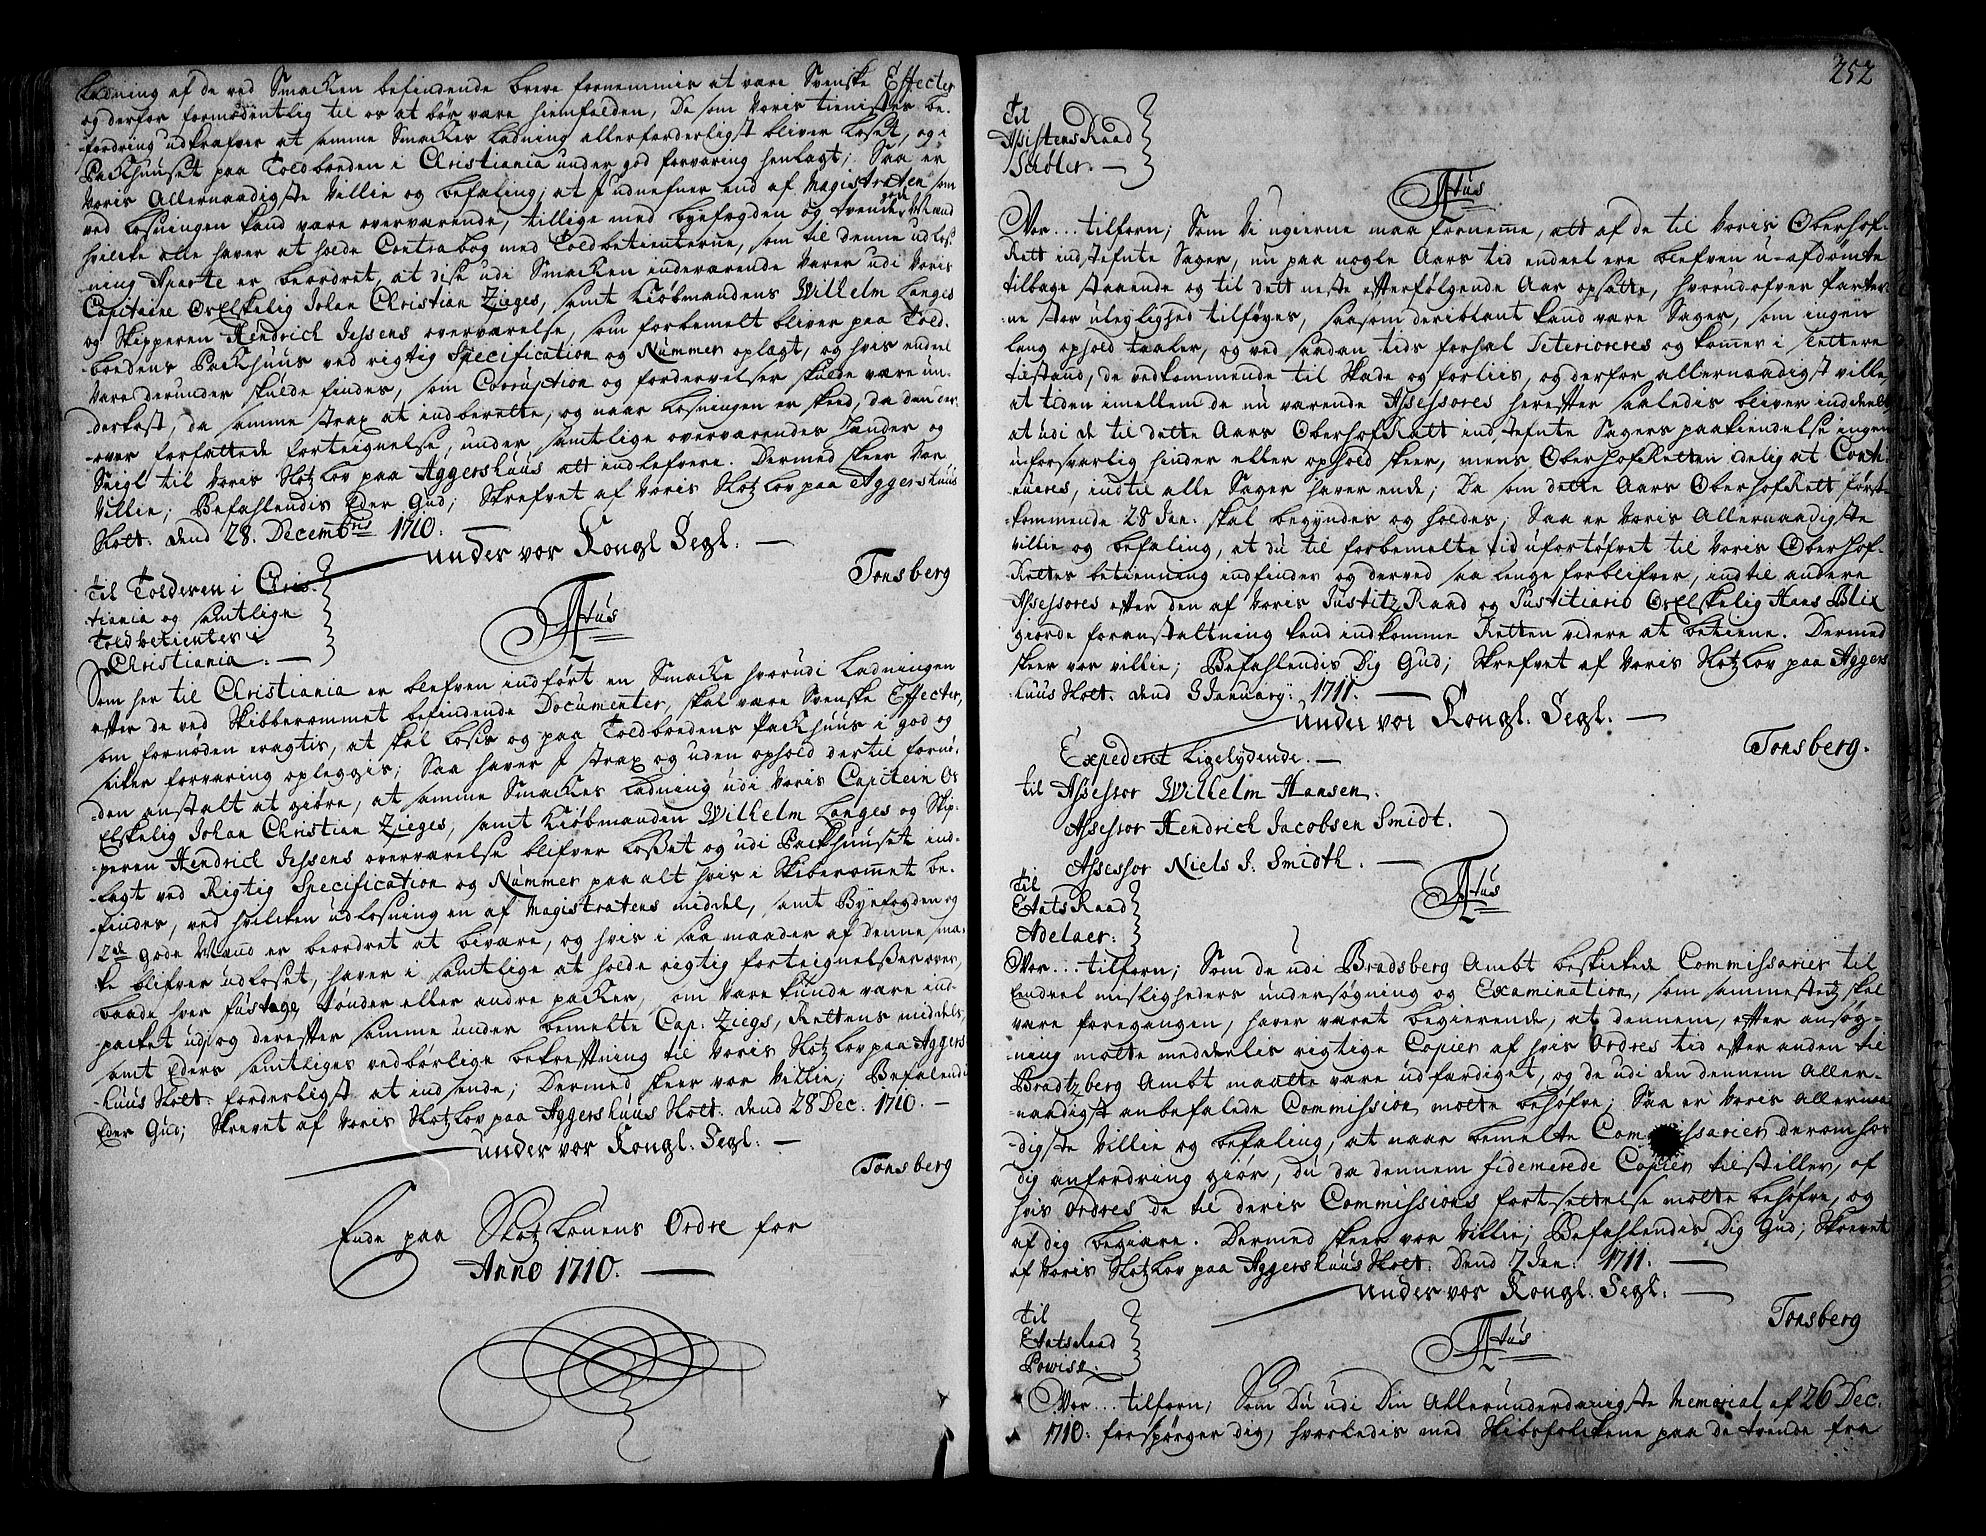 ladning af de ved Smacken befindende breve fornemmis at vare Svenske Effecter
og derfor formodentlig til os at bør vare hiemfalden, Da som voris tienistes be-
fordring udkrafver at samme Smackes ladning allerforderligst bliver loset, og i
Packhuuset paa Toldboeden i Christiania under god forvaring henlagt; Saa er
voris Allernaadigste villie og befaling, at I udnefner end af Magistraten som
ved losningen kand vare overværende, tillige med byefogden og tvende gode Mænd
hvilcke alle haver at holde Contrabog med Toldbetienterne, som til denne udlos-
ning Aparte er beordret, at disse udi Smacken indeværende varer udi voris
Capitaine OsElskelig Johan Christian Zieges, samt Kiöbmandens Wilhelm Langes
og Skipperen Hendrich Jessens overværelse, som forbemelt bliver paa Told-
boedens Packhuus ved rigtig Specification og Nummer oplagt, og hvis endeel
vare derunder skulde findes, som Corruption og fordervelser skulde være un-
derkast, da samme strax at indberette, og naar losningen er skeed, da den der-
over forfattede forteignelse, under samtlige overværendes hænder og
Seigl til voris Slotzlov paa Aggershuus at indlefvere. Dermed skeer vor
villie; Befahlendis Eder Gud; Skrefvet af voris Slotzlov paa Aggershuus
Slott. dend 28. Decembris 1710.
under vor Kongl Segl.
Tonsberg
Til Tolderen i Chris-
tiania og samtlige
Toldbetienter i
Christiania.
Litus
Som her til Christiania er blefven indført en Smacke hvorudi ladningen
efter de ved Skibberommet befindende Documenter, skal vare Svenske Effecter,
som fornøden eragtis, at skal losis og paa Toldboedens Packhuus i god og
sicker forvaring opleggis; Saa haver I strax og uden ophold dertil fornø-
den anstalt at giøre, at samme Smackes ladning udi voris Capitein Os
Elskelig Johan Christian Zieges, samt Kiöbmanden Wilhelm Langes og Skip-
peren Hendrich Jessens overværelse blifver losset og udi Packhuuset ind-
lagt ved Rigtig Specification og Nummer paa alt hvis i Skiberommet be-
findes, ved hvilcken udlosning en af Magistratens middel, samt Byefogden og
2de gode Mænd er beordret at bivare, og hvis i saa maader af denne sma-
ke blifver udloset, haver i samtlige at holde rigtig forteignelsser over,
baade hver fustage tønder eller andre packer, som vare kunde vare ind-
packet udi og derefter samme under bemelte Cap: Ziegs, Rettens middels,
samt Eders samtliges vedbørlige bekreftning til voris Slotzlov paa Aggers-
huus Slott forderligst at indsende; Dermed skeer vor villie; Befalendis
Eder Gud; Skrevet af voris Slotzlov paa Aggershuus Slott. dend 28 Dec. 1710.
under vor Kongl. Segl.
Tonsberg
Ende paa Slotzlovens Ordre for
Anno 1710.
252
Til
Assistens Raad
Seebler.
Litus
Vor... tilforn; Som Vi ugierne maa fornemme, att af de til Voris Oberhof-
Rett indstefnte Sager, nu paa nogle Aars tid endeel ere blefven u-afdömte
tilbage staaende og til dett neste efterfølgende Aar opsatte, hvorudofver Parter-
ne stor ulejlighed tilføyes, saasom deriblant kand vare Sager, som ingen
lang ophold taaler, og ved saadan tids forhal Deterioreres og komer i slettere
tilstand, de vedkommende til skade og forliis, og derfor allernaadigst ville,
at tiden imellem de nu værende Assessores herefter saaledis bliver inddeelt
at udi de til dette Aars Oberhof Rett indstefnte Sagers paakiendelse ingen
uforsvarlig hinder eller ophold skeer, mens Oberhof Retten delig at Conti-
nueres, indtil alle Sager haver ende; Da som dette Aars Oberhof Rett først-
kommende 28 Jan. skal begyndes og holdes; Saa er voris Allernaadigste
villie og befaling, at du til forbemelte tid ufortöfvet til voris Oberhof-
Rettes betienning indfinder og derved saa lenge forblifver, indtil andere
Assessores efter den af voris Justitz Raad og Justitiario Os Elskelig Hans Blix
giorde foranstaltning kand indkomme Retten videre at betiene. Dermed
skeer vor villie; Befahlendis Dig Gud; Skrefvet af voris Slotzlov paa Aggers-
huus Slott. dend 3 January: 1711.
under vor Kongl. Segl.
Tonsberg.
Expederet Ligelydende.
til Assessor Wilhelm Hansen.
Assessor Hendrich Jacobsen Smidt.
Assessor Niels J. Smidth.
Til
Etats Raad
Adelaer.
Litus
Vor... tilforn; Som de udi Bradsberg Ambt beskickede Commissarier til
Eendeel misligheders undersøgning og Examination, som sammestedz skal
vare foregangen, haver været begierende, at dennem, efter ansøg-
ning motte meddeelis rigtige Copier af hvis Ordres tid efter anden til
Bradtzberg Ambt maatte vare udfærdiget, og de udi den dennem Aller-
naadigst anbefalede Commission motte behøfve; Saa er voris Allernaa-
digste villie og befaling, at naar bemelte Commissarier derom hos
dig anfordring giør, du da dennem fidemerede Copier tilstiller, af
hvis Ordres de til deris Commissions fortsettelse motte behøfve, og
af dig begiære. Dermed skeer vor villie; Befahlendis Dig Gud; Skrevet
af voris Slotzlov paa Aggershuus Slott. Dend 7 Jan. 1711.
under vor Kongl. Segl.
Tonsberg
Til
Etatsraad
Powisz.
Litus
Vor... tilforn; Som Du udi Din Allerunderdanigste Memorial af 26 Dec.
1710. forspørger dig, hvorledis med Skibsfolckene paa de tvende fra